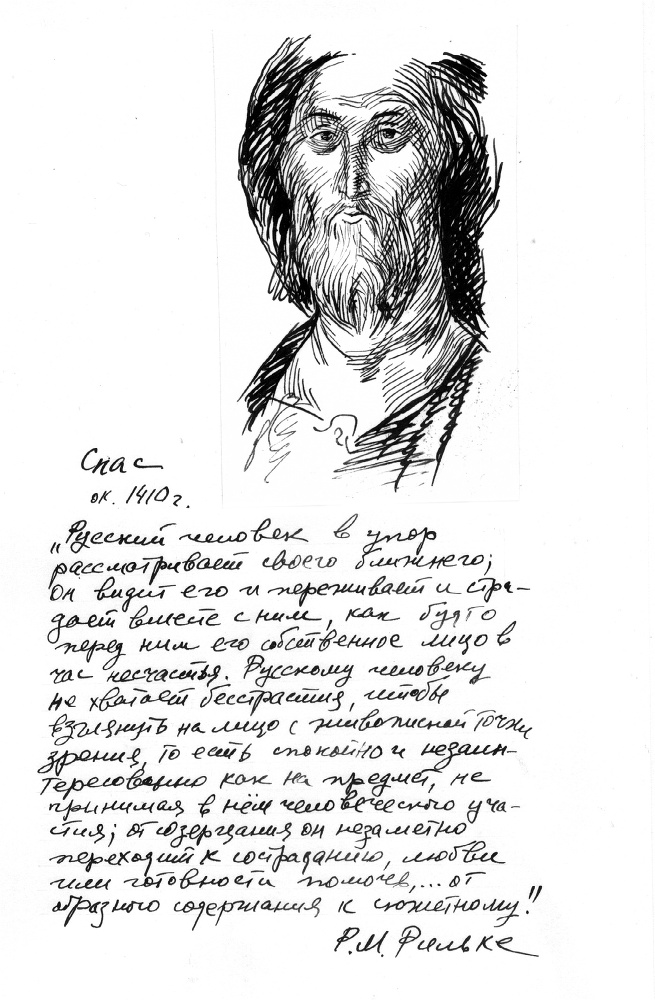 Спас
ок. 1410 г.
„Русский человек в упор
рассматривает своего ближнего;
он видит его и переживает и стра-
дает вместе с ним, как будто
перед ним его собственное лицо в
час несчастья. Русскому человеку
не хватает бесстрастия, чтобы
взглянуть на лицо с живописной точки
зрения, то есть спокойно и незаин-
тересованно как на предмет, не
принимая в нём человеческого уча-
стия; от созерцания он незаметно
переходит к состраданию, любви
или готовности помочь,... от
образного содержания к сюжетному!"
Р.М. Рильке